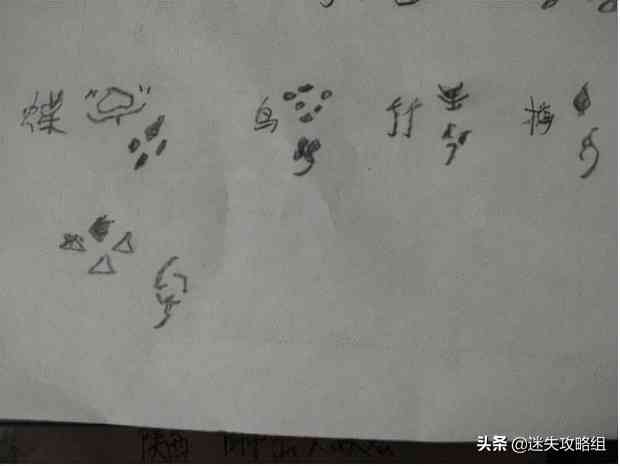 蝶 鸟 竹 梅
陕西
头条 @迷失攻略组